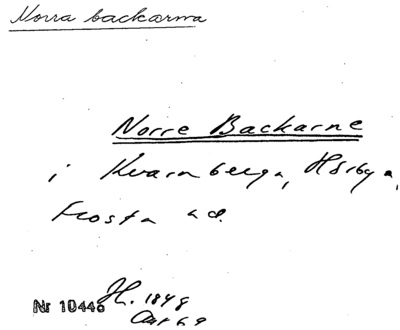 Norra backarna
Norre Backarne
i Kvarnberga, Hörby s,
Frosta hd.
Nr 10446 1848